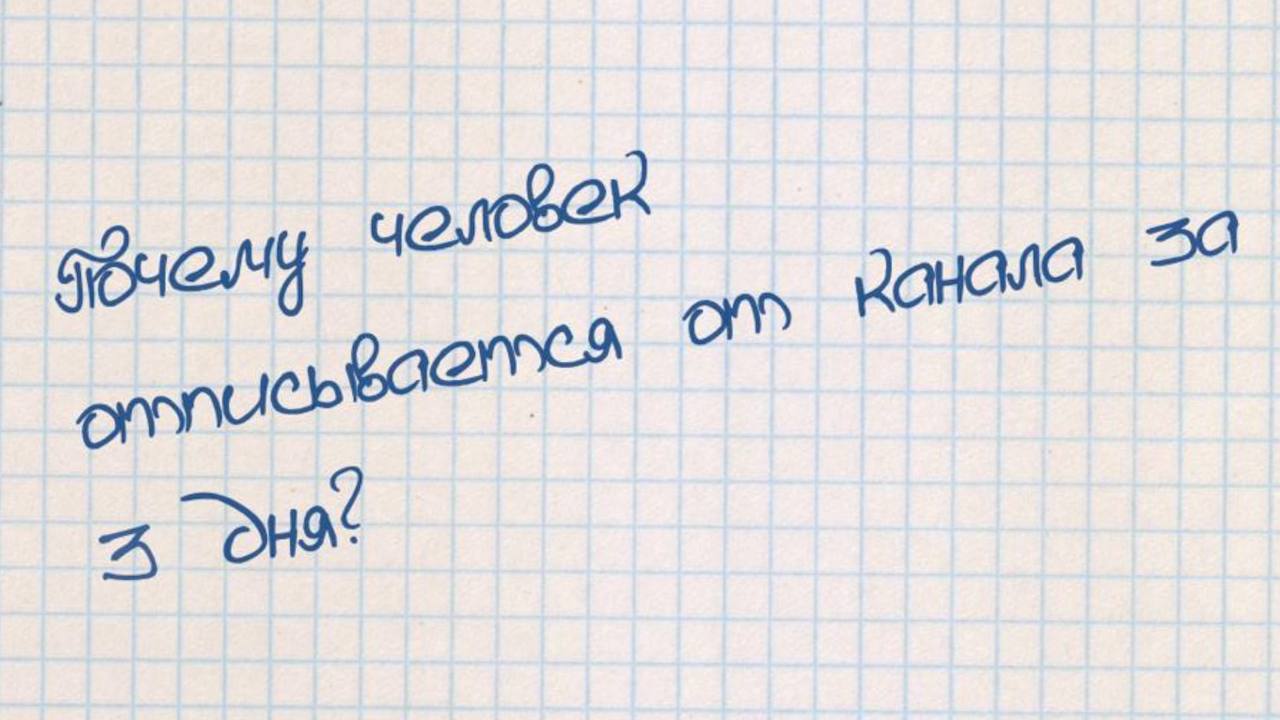 Почему человек
отписывается от канала за
3 дня?